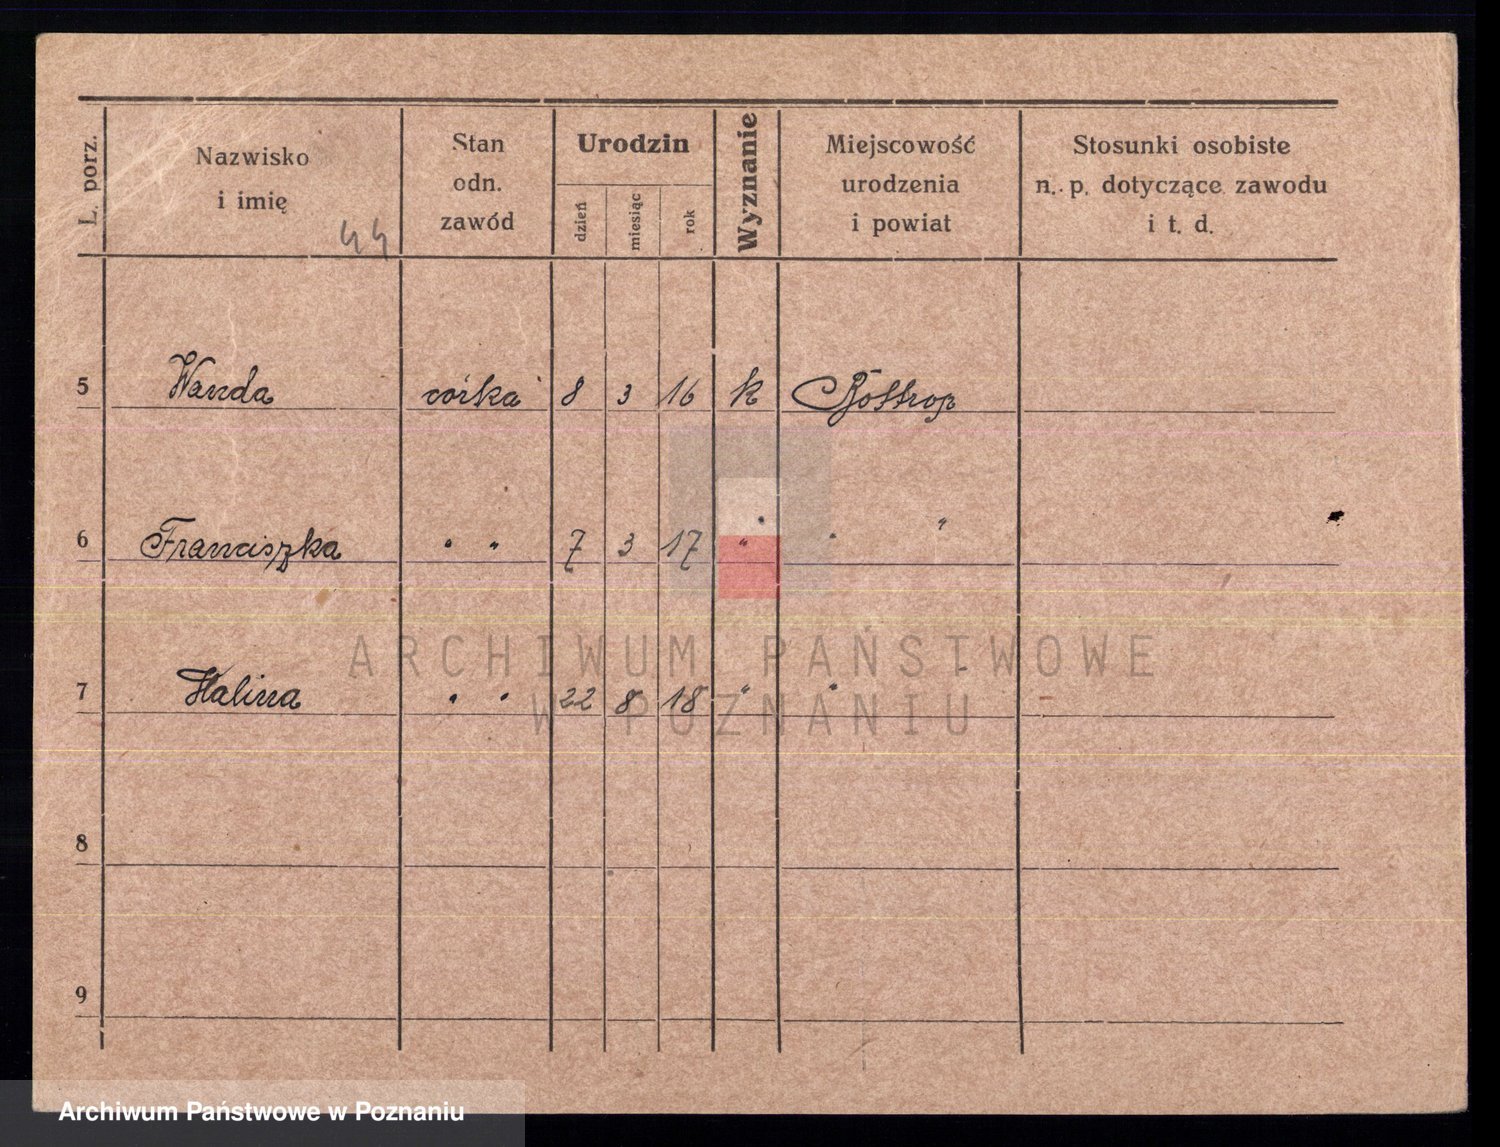 L. porz.
Nazwisko
i imię
44
Stan
odn.
zawód
Urodzin
dzień
miesiąc
rok
Wyznanie
Miejscowość
urodzenia
i powiat
Stosunki osobiste
n. p. dotyczące zawodu
i t. d.
5 Wanda córka 8 3 16 k Bottrop
6 Franciszka " " 7 3 17 " " "
7 Halina " " 22 8 18 " "
8
9
ARCHIWUM PAŃSTWOWE
W POZNANIU
Archiwum Państwowe w Poznaniu